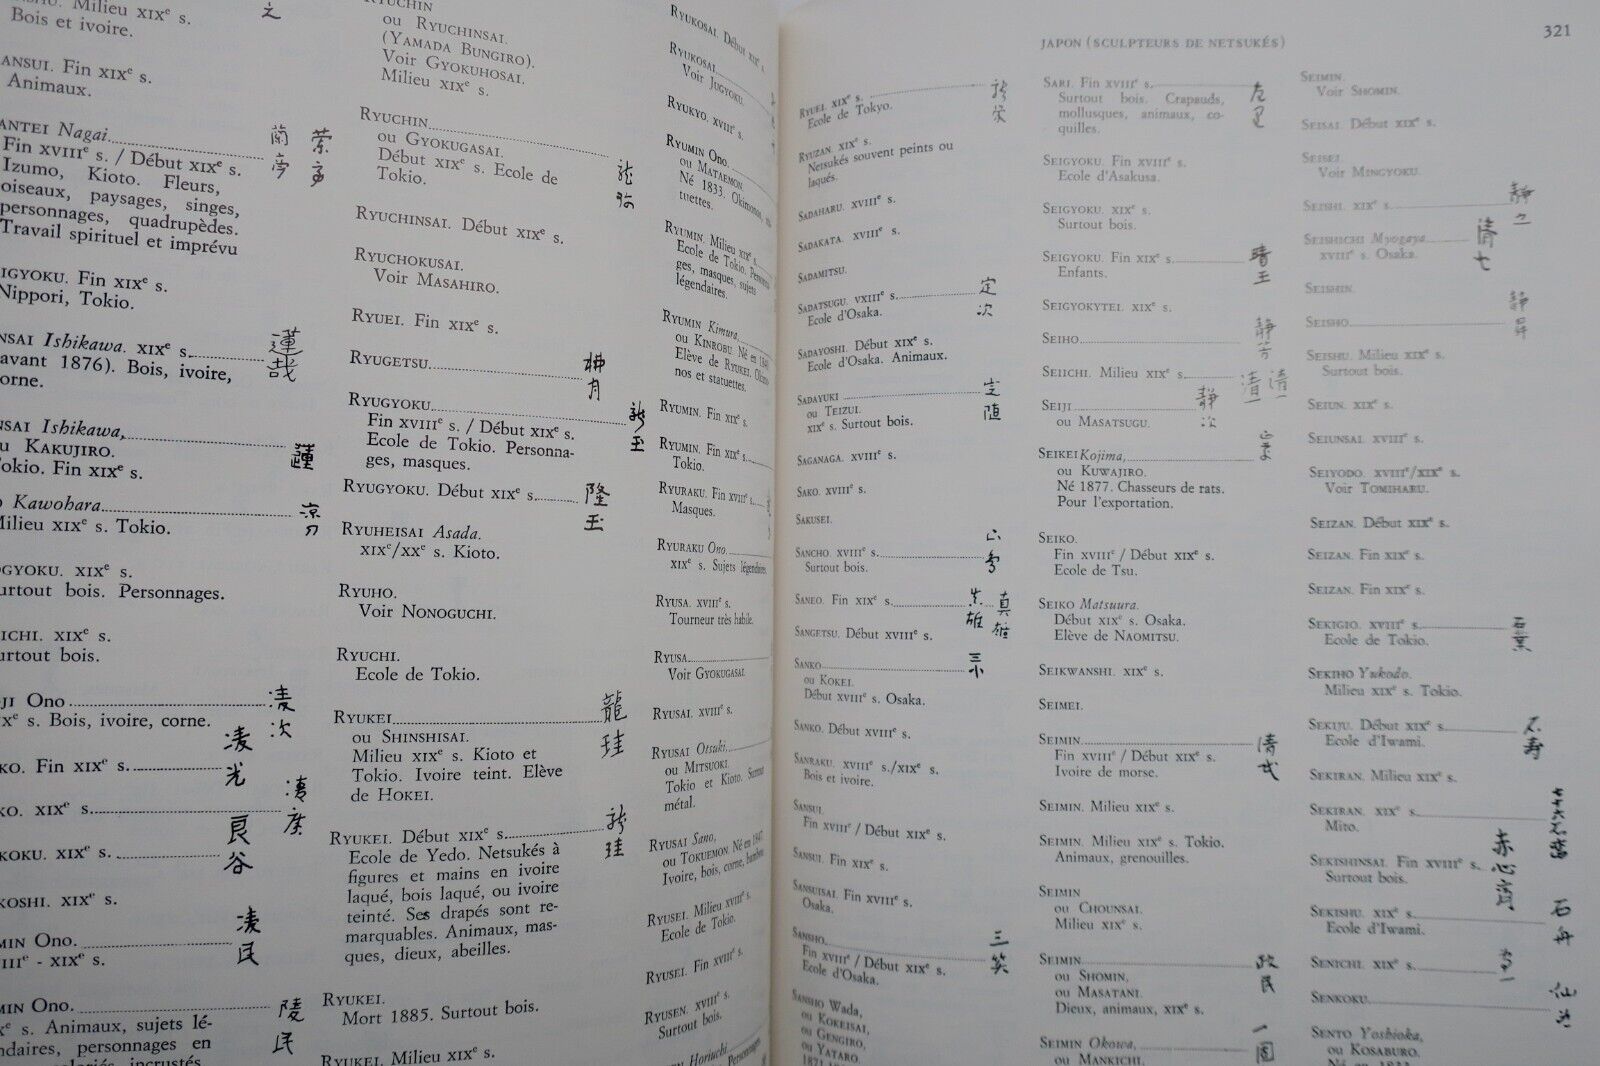 SHU. Milieu XIXe s.
Bois et ivoire.
之
ANSUI. Fin XIXe s.
Animaux.
ANTEI Nagai
Fin XVIIIe s. / Début XIXe s.
Izumo, Kioto. Fleurs,
oiseaux, paysages, singes,
personnages, quadrupèdes.
Travail spirituel et imprévu
IGYOKU. Fin XIXe s.
Nippori, Tokio.
NSAI Ishikawa. XIXe s.
avant 1876). Bois, ivoire,
corne.
蓮哉
NSAI Ishikawa,
u KAKUJIRO.
Tokio. Fin XIXe s.
蓮
O Kawohara
Milieu XIXe s. Tokio.
OGYOKU. XIXe s.
urtout bois. Personnages.
ICHI. XIXe s.
urtout bois.
JI Ono
Xe s. Bois, ivoire, corne.
凌次
KO. Fin XIXe s.
凌光
KO. XIXe s.
KOKU. XIXe s.
良谷
KOSHI. XIXe s.
MIN Ono.
VIIIe - XIXe s.
凌民
MIN Ono.
Xe s. Animaux, sujets lé-
ndaires, personnages en
incrustés
陵民
RYUCHIN
ou RYUCHINSAI.
(YAMADA BUNGIRO).
Voir GYOKUHOSAI.
Milieu XIXe s.
RYUCHIN
ou GYOKUGASAI.
Début XIXe s. Ecole de
Tokio.
RYUCHINSAI. Début XIXe s.
RYUCHOKUSAI.
Voir MASAHIRO.
RYUEI. Fin XIXe s.
RYUGETSU.
RYUGYOKU
Fin XVIIIe s. / Début XIXe s.
Ecole de Tokio. Personna-
ges, masques.
RYUGYOKU. Début XIXe s.
隆玉
RYUHEISAI Asada.
XIXe/XXe s. Kioto.
RYUHO.
Voir NONOGUCHI.
RYUCHI.
Ecole de Tokio.
RYUKEI
ou SHINSHISAI.
Milieu XIXe s. Kioto et
Tokio. Ivoire teint. Elève
de HOKEI.
龍珪
RYUKEI. Début XIXe s.
Ecole de Yedo. Netsukés à
figures et mains en ivoire
laqué, bois laqué, ou ivoire
teinté. Ses drapés sont re-
marquables. Animaux, mas-
ques, dieux, abeilles.
RYUKEI.
Mort 1885. Surtout bois.
RYUKEI. Milieu XIXe s.
RYUKOSAI. Début XIXe s.
RYUKOSAI.
Voir JUGYOKU.
RYUKYO. XVIIIe s.
RYUMIN Ono.
ou MATAEMON.
Né 1833. Okimonos, sta-
tuettes.
RYUMIN. Milieu XIXe s.
Ecole de Tokio. Personna-
ges, masques, sujets
légendaires.
RYUMIN Kimura,
ou KINROBU. Né en
Elève de RYUKEI. Okimo-
nos et statuettes.
RYUMIN. Fin XIXe s.
RYUMIN. Fin XIXe s.
Tokio.
RYURAKU. Fin XVIIIe s.
Masques.
RYURAKU Ono.
XIXe s. Sujets légendaires.
RYUSA. XVIIIe s.
Tourneur très habile.
RYUSA
Voir GYOKUGASAI.
RYUSAI. XVIIIe s.
RYUSAI Otsuki.
ou MITSUOKI.
Tokio et Kioto. Surtout
métal.
RYUSAI Sano,
ou TOKUEMON. Né en 1847
Ivoire, bois, corne, bambou
RYUSEI. Milieu XVIIIe s.
Ecole de Tokio.
RYUSEI. Fin XVIIIe s.
RYUSEN. XVIIIe s.
Surtout bois.
Horiuchi
321
JAPON (SCULPTEURS DE NETSUKÉS)
RYUEI. XIXe s.
Ecole de Tokyo.
RYUZAN. XIXe s.
Netsukés souvent peints ou
laqués.
SADAHARU. XVIIIe s.
SADAKATA. XVIIIe s.
SADAMITSU.
SADATSUGU. VXIIIe s.
Ecole d'Osaka.
定次
SADAYOSHI. Début XIXe s.
Ecole d'Osaka. Animaux.
SADAYUKI
ou TEIZUI.
XIXe s. Surtout bois.
SAGANAGA. XVIIIe s.
SAKO. XVIIIe s.
SAKUSEI.
SANCHO. XVIIIe s.
Surtout bois.
SANEO. Fin XIXe s.
真雄
SANGETSU. Début XVIIIe s.
SANKO
ou KOKEI.
Début XVIIIe s. Osaka.
三小
SANKO. Début XVIIIe s.
SANRAKU. XVIIIe s./XIXe s.
Bois et ivoire.
SANSUI.
Fin XVIIIe / Début XIXe s.
SANSUI. Fin XIXe s.
SANSUISAI. Fin XVIIIe s.
Osaka.
SANSHO
Fin XVIIIe / Début XIXe s.
Ecole d'Osaka.
三笑
SANSHO Wada,
ou KOKEISAI,
ou GENGIRO,
ou YATARO.
SARI. Fin XVIIIe s.
Surtout bois. Crapauds,
mollusques, animaux, co-
quilles.
左里
SEIGYOKU. Fin XVIIIe s.
Ecole d'Asakusa.
SEIGYOKU. XIXe s.
Surtout bois.
SEIGYOKU. Fin XIXe s.
Enfants.
晴玉
SEIGYOKYTEI. XIXe s.
SEIHO
静芳
SEIICHI. Milieu XIXe s.
清一 清一
SEIJI
ou MASATSUGU.
静次
SEIKEI Kojima,
ou KUWAJIRO.
Né 1877. Chasseurs de rats.
Pour l'exportation.
SEIKO.
Fin XVIIIe / Début XIXe s.
Ecole de Tsu.
SEIKO Matsuura.
Début XIXe s. Osaka.
Elève de NAOMITSU.
SEIKWANSHI. XIXe s.
SEIMEI.
SEIMIN
Fin XVIIIe / Début XIXe s.
Ivoire de morse.
SEIMIN. Milieu XIXe s.
SEIMIN. Milieu XIXe s. Tokio.
Animaux, grenouilles.
SEIMIN
ou CHOUNSAI.
Milieu XIXe s.
SEIMIN
ou SHOMIN,
ou MASATANI.
Dieux, animaux, XIXe s.
政民
SEIMIN Okowa,
ou MANKICHI.
SEIMIN.
Voir SHOMIN.
SEISAI. Début XIXe s.
SEISEI.
Voir MINGYOKU.
SEISHI. XIXe s.
静之
SEISHICHI Myogaya
XVIIIe s. Osaka.
清七
SEISHIN.
SEISHO
静昇
SEISHU. Milieu XIXe s.
Surtout bois.
SEIUN. XIXe s.
SEIUNSAI. XVIIIe s.
SEIYODO. XVIIIe/XIXe s.
Voir TOMIHARU.
SEIZAN. Début XIXe s.
SEIZAN. Fin XIXe s.
SEIZAN. Fin XIXe s.
SEKIGIO. XVIIIe s.
Ecole de Tokio.
SEKIHO Yukodo.
Milieu XIXe s. Tokio.
SEKIJU. Début XIXe s.
Ecole d'Iwami.
石寿
SEKIRAN. Milieu XIXe s.
SEKIRAN. XIXe s.
Mito.
SEKISHINSAI. Fin XVIIIe s.
Surtout bois.
赤心齋
SEKISHU. XIXe s.
Ecole d'Iwami.
石舟
SENICHI. XIXe s.
SENKOKU
SENTO Yoshioka,
ou KOSABURO.